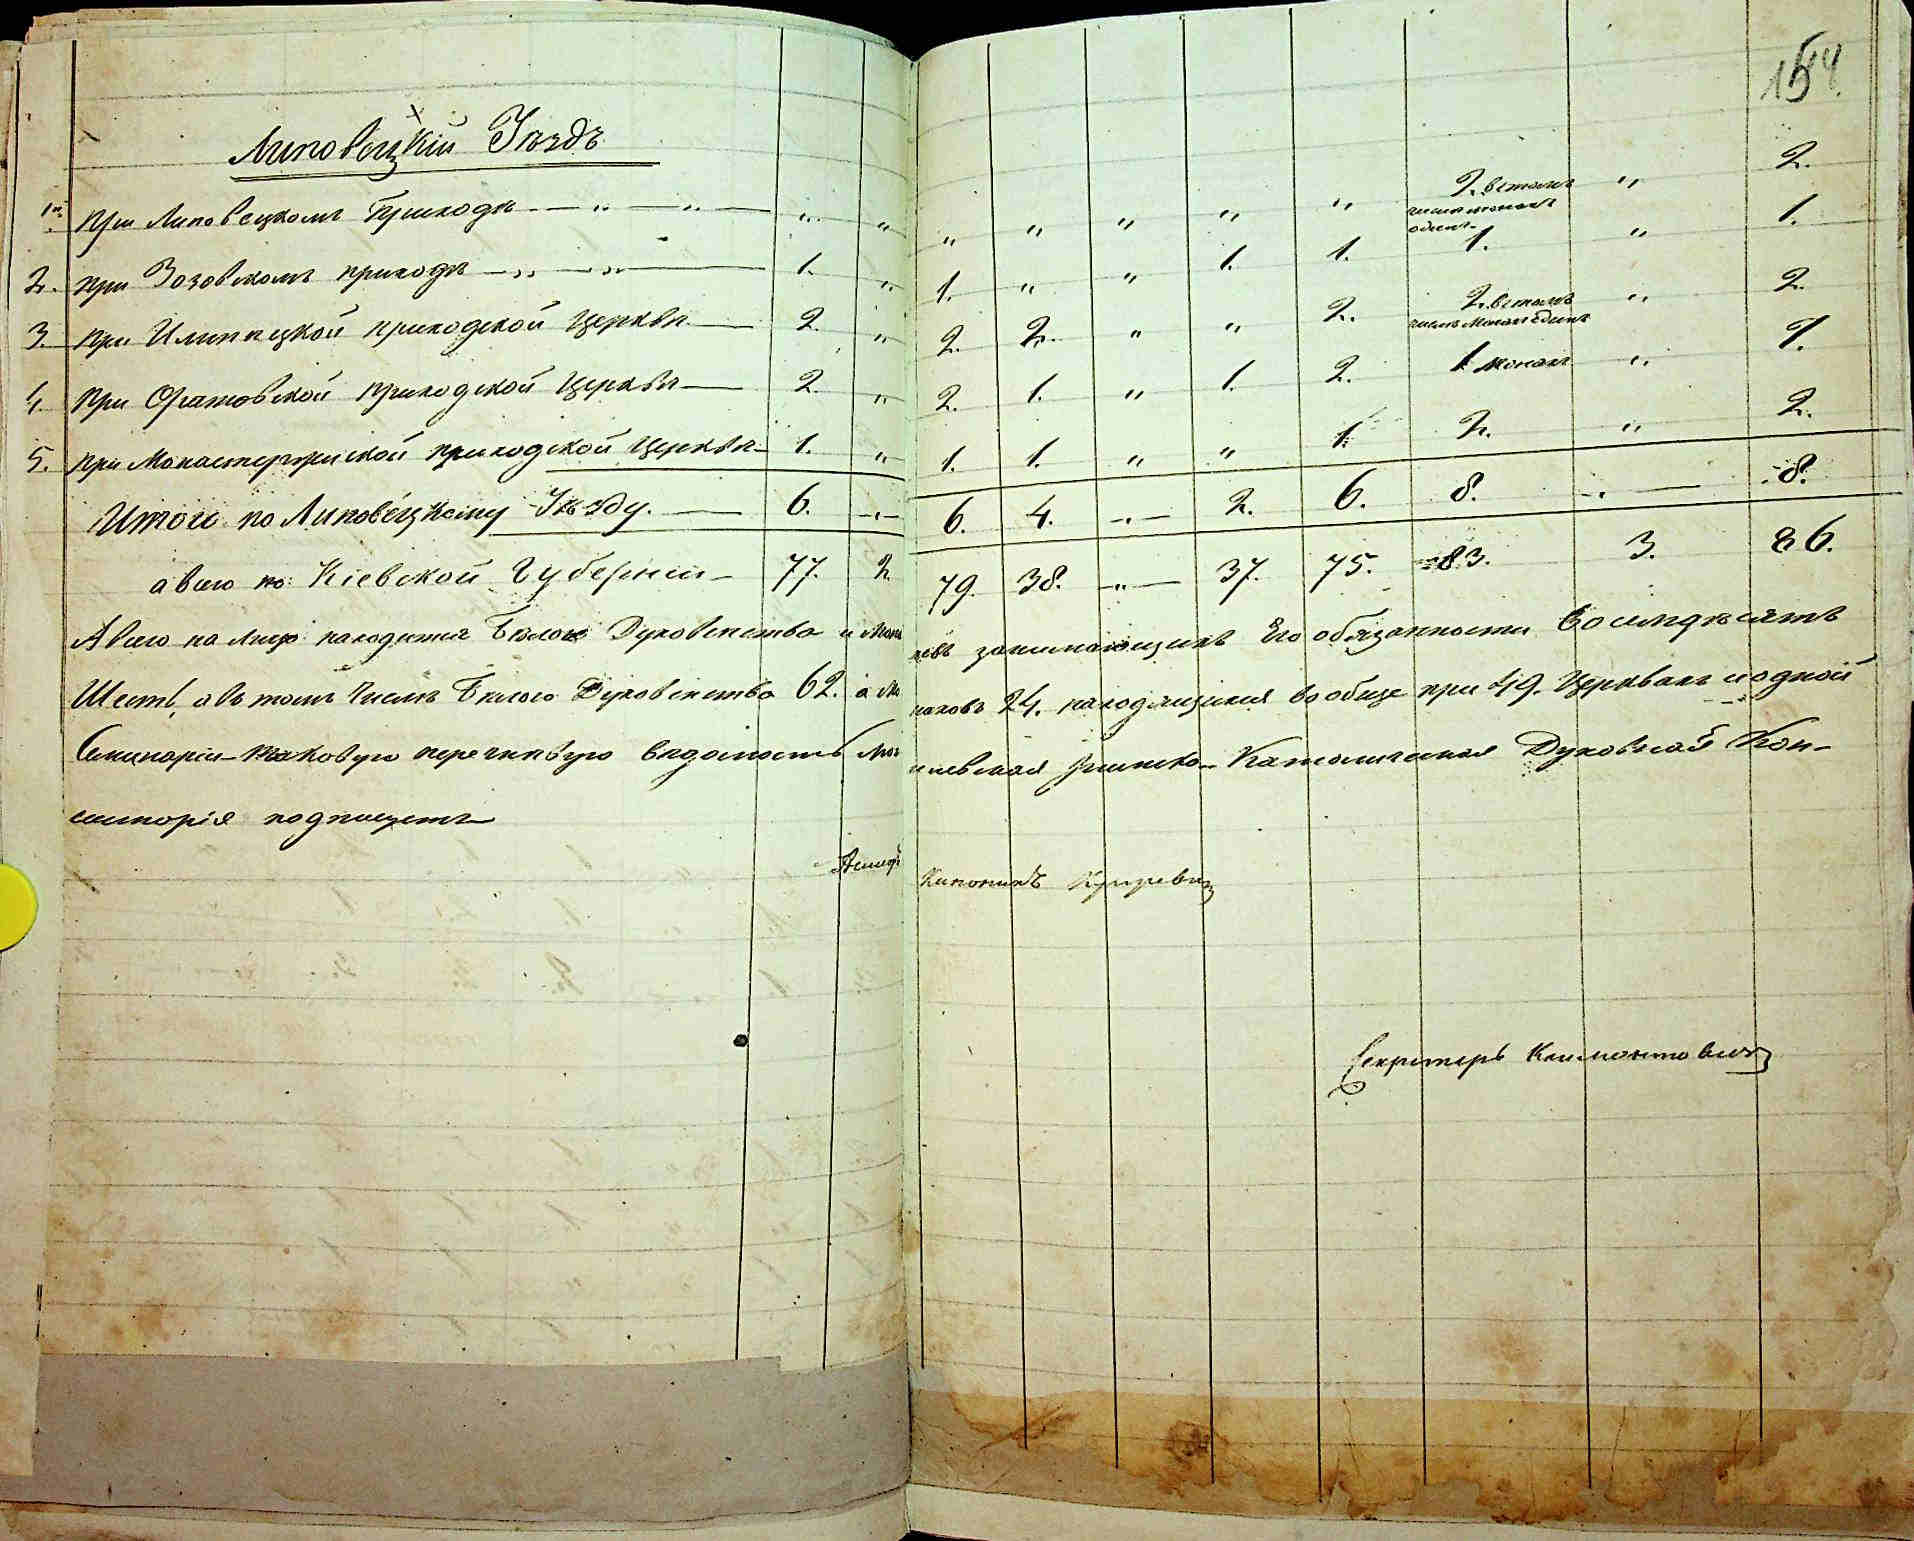 154.
Липовецкій Уѣздъ
1. при Липовецкомъ Приходѣ — „ — „ — „ „ „ „ „ „ „ 2. в томъ числѣ монахъ одинъ „ 2.
2. при Зозовскомъ приходѣ — „ — „ — 1. „ 1. „ „ 1. 1. 1. „ 1.
3. при Илинецкой приходской Церкви — 2. „ 2. 2. „ „ 2. 2. в томъ числѣ Монахъ Одинъ „ 2.
4. при Оратовской приходской Церкви — 2. „ 2. 1. „ 1. 2. 1 монахъ „ 1.
5. при Монастырской приходской Церкви — 1. „ 1. 1. „ „ 1. 2. „ 2.
Итого по Липовецкому Уѣзду. — 6. — „ — 6. 4. — „ — 2. 6. 8. — „ — 8.
а всего по Кіевской Губерніи — 77. 2. 79. 38. — „ — 37. 75. 83. 3. 86.
А всего на лицо находится Бѣлаго Духовенства и Мона ховъ занимающихъ Его обязанности Восемдѣсятъ
Шесть, а въ томъ Числѣ Бѣлаго Духовенства 62. а Мо наховъ 24. находящихся вообще при 49. Церквахъ и одной
Семинаріи — Таковую перечневую вѣдомость Мог илевская Римско-Католическая Духовная Кон-
систорія подноситъ
Каноникъ
Секретарь Климонтовичъ